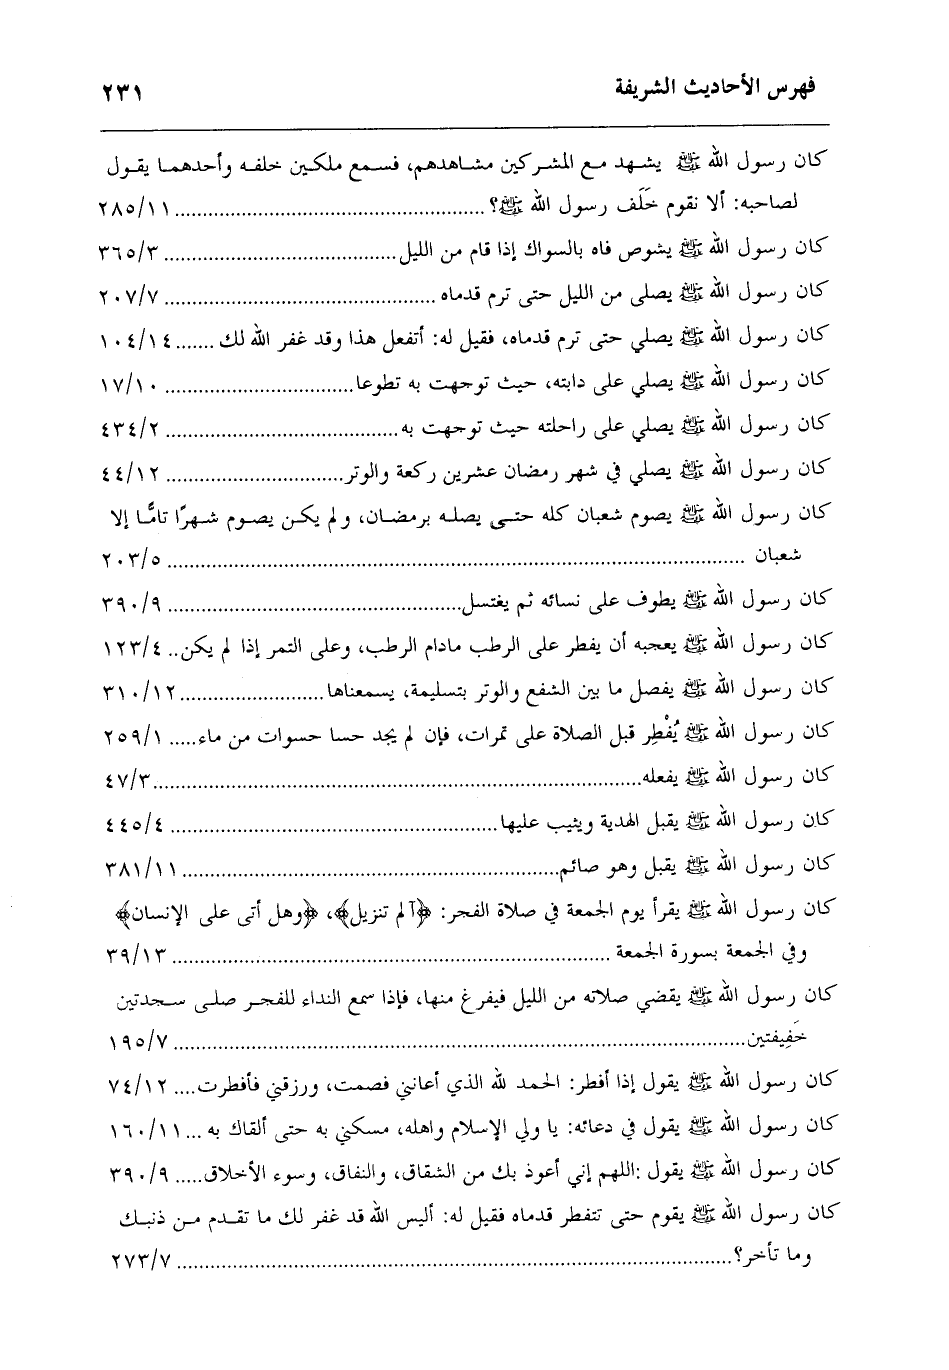 فهرس الأحاديث الشريفة ٢٣١
كان رسول الله ﷺ يشهد مع المشركين مشاهدهم، فسمع ملكين خلفه وأحدهما يقول
لصاحبه: ألا نقوم خَلَف رسول الله ﷺ؟ ........ ٢٨٥/١١
كان رسول الله ﷺ يشوص فاه بالسواك إذا قام من الليل ........ ٣٦٥/٣
كان رسول الله ﷺ يصلى من الليل حتى ترم قدماه ........ ٢٠٧/٧
كان رسول الله ﷺ يصلي حتى ترم قدماه، فقيل له: أتفعل هذا وقد غفر الله لك ....... ١٠٤/١٤
كان رسول الله ﷺ يصلي على دابته، حيث توجهت به تطوعا ........ ١٧/١٠
كان رسول الله ﷺ يصلي على راحلته حيث توجهت به ........ ٤٣٤/٢
كان رسول الله ﷺ يصلي في شهر رمضان عشرين ركعة والوتر ........ ٤٤/١٢
كان رسول الله ﷺ يصوم شعبان كله حتى يصله برمضان، ولم يكن يصوم شهرًا تامًّا إلا
شعبان ........ ٢٠٣/٥
كان رسول الله ﷺ يطوف على نسائه ثم يغتسل ........ ٣٩٠/٩
كان رسول الله ﷺ يعجبه أن يفطر على الرطب مادام الرطب، وعلى التمر إذا لم يكن.. ١٢٣/٤
كان رسول الله ﷺ يفصل ما بين الشفع والوتر بتسليمة، يسمعناها ........ ٣١٠/١٢
كان رسول الله ﷺ يُفْطِر قبل الصلاة على تمرات، فإن لم يجد حسا حسوات من ماء..... ٢٥٩/١
كان رسول الله ﷺ يفعله ........ ٤٧/٣
كان رسول الله ﷺ يقبل الهدية ويثيب عليها ........ ٤٤٥/٤
كان رسول الله ﷺ يقبل وهو صائم ........ ٣٨١/١١
كان رسول الله ﷺ يقرأ يوم الجمعة في صلاة الفجر: ﴿آلم تنزيل﴾، ﴿وهل أتى على الإنسان﴾
وفي الجمعة بسورة الجمعة ........ ٣٩/١٣
كان رسول الله ﷺ يقضي صلاته من الليل فيفرغ منها، فإذا سمع النداء للفجر صلى سجدتين
خَفِيفتين ........ ١٩٥/٧
كان رسول الله ﷺ يقول إذا أفطر: الحمد لله الذي أعانني فصمت، ورزقني فأفطرت.... ٧٤/١٢
كان رسول الله ﷺ يقول في دعائه: يا ولي الإسلام واهله، مسكني به حتى ألقاك به ... ١٦٠/١١
كان رسول الله ﷺ يقول :اللهم إني أعوذ بك من الشقاق، والنفاق، وسوء الأخلاق..... ٣٩٠/٩
كان رسول الله ﷺ يقوم حتى تتفطر قدماه فقيل له: أليس الله قد غفر لك ما تقدم من ذنبك
وما تأخر؟ ........ ٢٧٣/٧